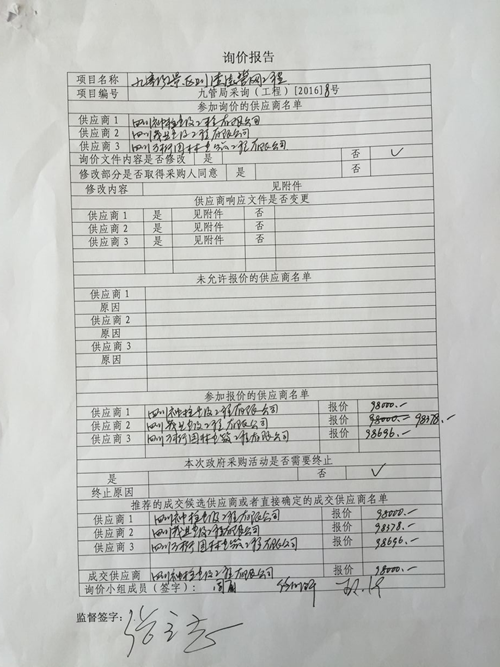 询价报告
项目名称
项目编号 九管局采询（工程）[2016]8号
参加询价的供应商名单
供应商1 四川 建设工程有限公司
供应商2 四川 建设工程有限公司
供应商3 四川 园林 工程有限公司
询价文件内容是否修改 是 否 ✓
修改部分是否取得采购人同意 是 否
修改内容 见附件
供应商响应文件是否变更
供应商1 是 见附件 否
供应商2 是 见附件 否
供应商3 是 见附件 否
未允许报价的供应商名单
供应商1
原因
供应商2
原因
供应商3
原因
参加报价的供应商名单
供应商1 四川 建设工程有限公司 报价 98000.-
供应商2 四川 建设工程有限公司 报价 98000.- 98378.-
供应商3 四川 园林 工程有限公司 报价 98696.-
本次政府采购活动是否需要终止
是 否 ✓
终止原因
推荐的成交候选供应商或者直接确定的成交供应商名单
供应商1 四川 建设工程有限公司 报价 98000.-
供应商2 四川 建设工程有限公司 报价 98378.-
供应商3 四川 园林 工程有限公司 报价 98696.-
成交供应商 四川 建设工程有限公司 报价 98000.-
询价小组成员（签字）：
监督签字：